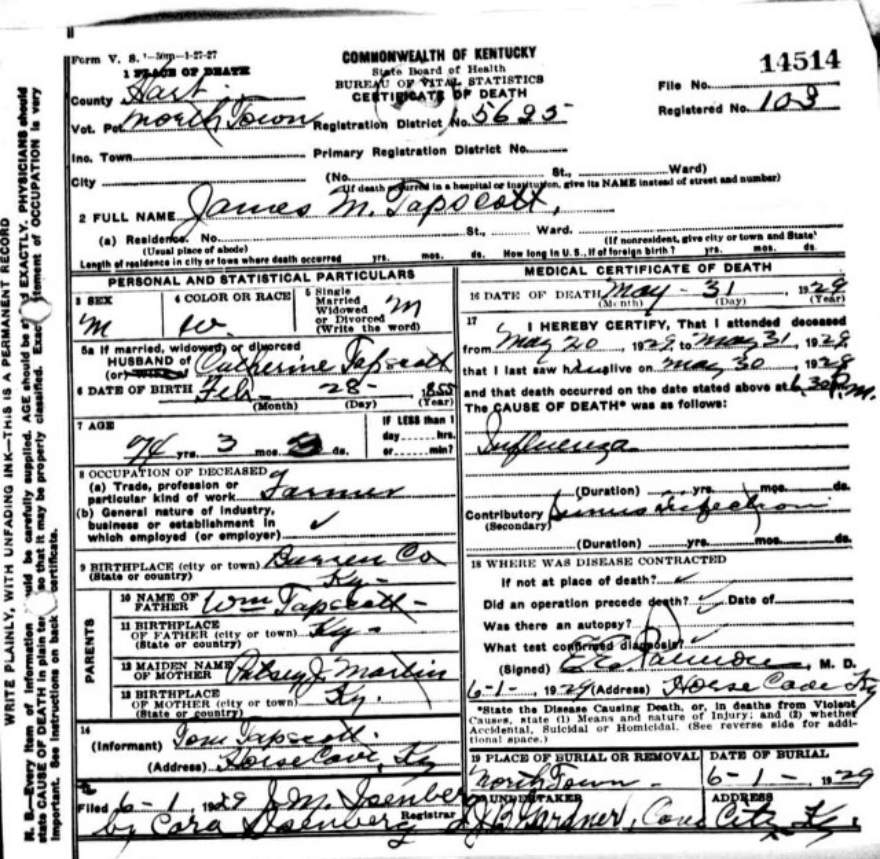 Form V. S. 1-50m-1-27-27
COMMONWEALTH OF KENTUCKY
State Board of Health
BUREAU OF VITAL STATISTICS
CERTIFICATE OF DEATH
14514
File No.
Registered No. 103
1 PLACE OF DEATH
County Hart
Vot. Pct. North Town Registration District No. 5625
Inc. Town Primary Registration District No.
City (No. St., Ward)
(If death occurred in a hospital or institution, give its NAME instead of street and number)
2 FULL NAME James M. Tapscott,
(a) Residence. No. St., Ward.
(Usual place of abode) (If nonresident, give city or town and State)
Length of residence in city or town where death occurred yrs. mos. ds. How long in U. S., if of foreign birth? yrs. mos. ds.
PERSONAL AND STATISTICAL PARTICULARS
3 SEX M
4 COLOR OR RACE W.
5 Single Married Widowed or Divorced (Write the word) M
5a If married, widowed, or divorced
HUSBAND of Catherine Tapscott
(or) WIFE of
6 DATE OF BIRTH Feb - 28 - 1855
(Month) (Day) (Year)
7 AGE 74 yrs. 3 mos. ds.
IF LESS than 1
day hrs.
or min?
8 OCCUPATION OF DECEASED
(a) Trade, profession or
particular kind of work Farmer
(b) General nature of industry,
business or establishment in
which employed (or employer) ✓
9 BIRTHPLACE (city or town) Barren Co
(State or country) Ky-
PARENTS
10 NAME OF
FATHER Wm Tapscott -
11 BIRTHPLACE
OF FATHER (city or town) Ky -
(State or country)
12 MAIDEN NAME
OF MOTHER Patsey J. Martin
13 BIRTHPLACE
OF MOTHER (city or town) Ky.
(State or country)
14
(Informant) Tom Tapscott.
(Address) Horse Cave, Ky
Filed 6-1, 1929 J. M. Isenberg
by Cora Isenberg Registrar
MEDICAL CERTIFICATE OF DEATH
16 DATE OF DEATH May - 31, 1929
(Month) (Day) (Year)
17 I HEREBY CERTIFY, That I attended deceased
from May 20, 1929, to May 31, 1929,
that I last saw him alive on May 30, 1929
and that death occurred on the date stated above at 6.30 P.m.
The CAUSE OF DEATH* was as follows:
Influenza
(Duration) yrs. mos. ds.
Contributory Sinus Infection
(Secondary)
(Duration) yrs. mos. ds.
18 WHERE WAS DISEASE CONTRACTED
If not at place of death? ✓
Did an operation precede death? ✓ Date of
Was there an autopsy?
What test confirmed diagnosis? ✓
(Signed) M. D.
6-1-, 1929 (Address) Horse Cave Ky
*State the Disease Causing Death, or, in deaths from Violent
Causes, state (1) Means and nature of Injury; and (2) whether
Accidental, Suicidal or Homicidal. (See reverse side for addi-
tional space.)
19 PLACE OF BURIAL OR REMOVAL North Town
DATE OF BURIAL 6-1-, 1929
UNDERTAKER Gardner,
ADDRESS Cave City Ky.
WRITE PLAINLY, WITH UNFADING INK—THIS IS A PERMANENT RECORD
N. B.—Every item of information should be carefully supplied. AGE should be EXACTLY. PHYSICIANS should
state CAUSE OF DEATH in plain ter so that it may be properly classified. Exact statement of OCCUPATION is very
important. See instructions on back certificate.